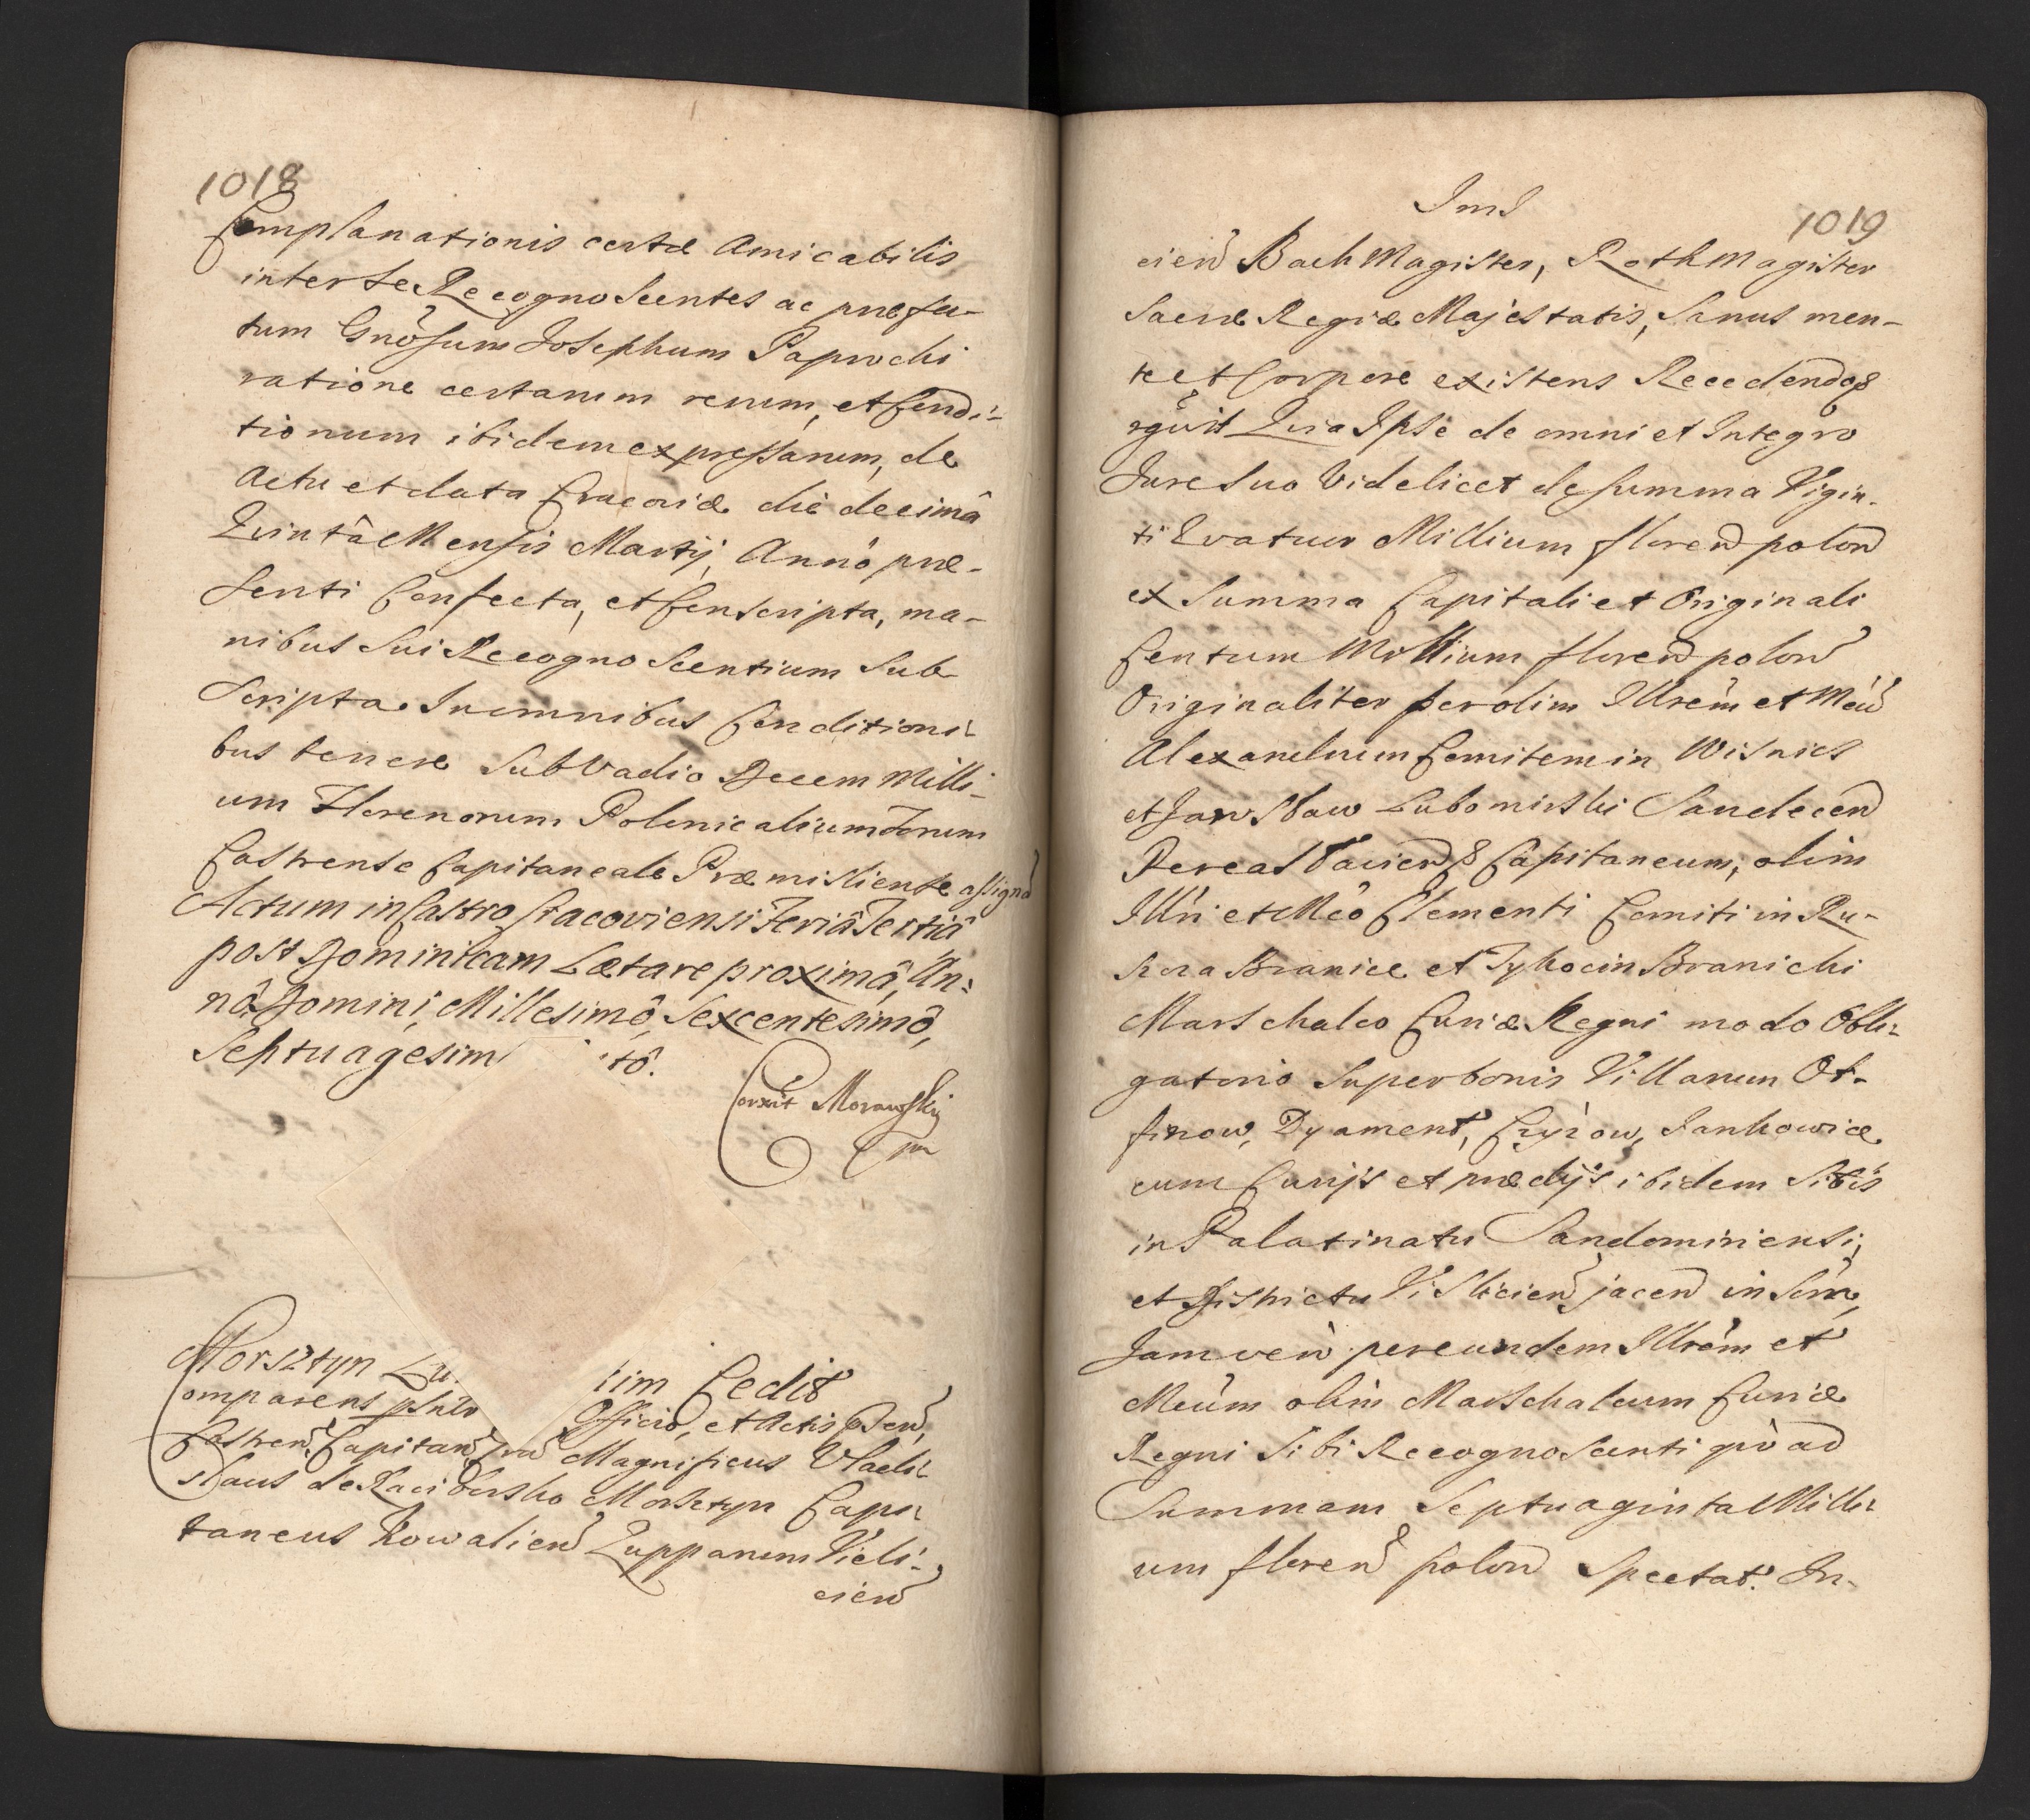 1018
Complanationis certæ Amicabilis
inter se Recognoscentes ac præfa-
tum Gnosum Josephum Paprocki
ratione certarum rerum, et Condi-
tionum ibidem expressarum, de
Actu et data Cracoviæ die decimâ
Quintâ Mensis Martij, Annô præ-
senti Confecta, et Conscripta, ma-
nibus sui Recognoscentium Sub
scripta. In omnibus Conditioni-
bus tenere Sub Vadio Decem Milli-
um Florenorum Polonicalium Forum
Castrense Capitaneale Præmisliense assignā
Actum in Castro Cracoviensi Feriâ Tertiâ
post Dominicam Lætare proximâ, An-
nô Domini, Millesimô, Sexcentesimô,
Septuagesim tô.
Corxit Morawskij
mp
Morsztyn Lu tim Cedit
Comparens psnlr Officio, et Actis pnen,
Castren Capitan Crac Magnificus Vladi-
slaus de Raciborsko Morsztyn Capi-
taneus Kowalien Zupparum Vieli-
cien
1019
cien Bach Magister, Roth Magister
Sacræ Regiæ Majestatis, Sanus men-
te et Corpore existens Recedendoq
rgūit Quia Ipse de omni et Integro
Jure suo Videlicet de summa Vigin-
ti Quatuor Millium floren polon
ex Summa Capitali et Originali
Centum Millium floren polon
Originaliter per olim Illrem et Mcū
Alexandrum Comitem in Wisnicz
et Jarosław Lubomirski Sandecen
Pereaslavien Capitaneum, olim
Illri et Mco Clementi Comiti in Ru-
szcza Branice et Tykocin Branicki
Marschalco Curiæ Regni modo Obli-
gatorio super bonis Villarum Ot-
finow, Dyament, Czyzow, Jankowice
cum Curijs et prædijs ibidem sitis
in Palatinatu Sandomiriensi,
et Districtu Vislicien jacen inscrā,
Jam vero per eundem Illrem et
Mcum olim Marschalcum Curiæ
Regni Sibi Recognoscenti quò ad
Summam Septuaginta Milli-
um floren polon Spectat. In-